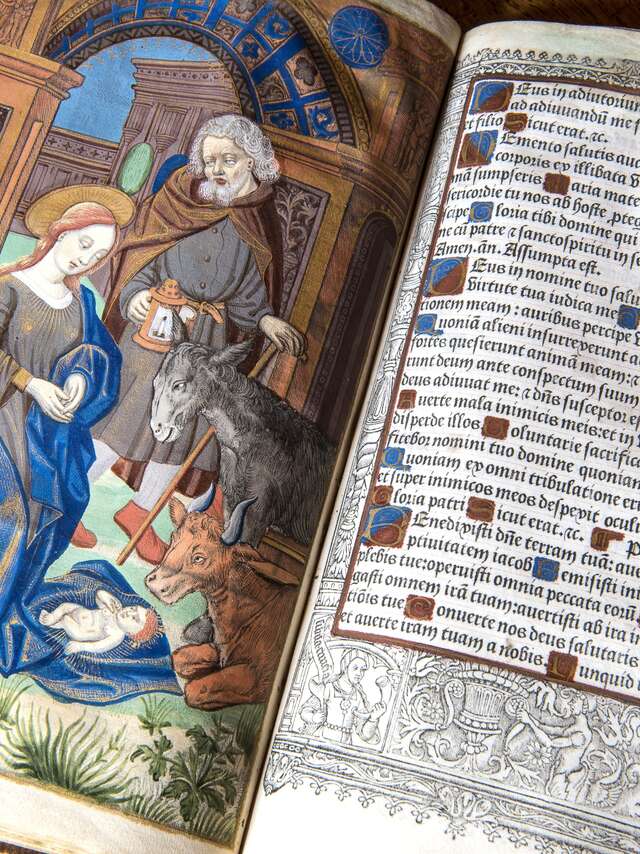 Deus in adiutoriu
ad adiuvandū me
et filio Sicut erat.ꝛc.
Memento salutis
corporis ex illibata
mā sumpseris. Maria mate
sericordie tu nos ab hoste, pteg
scipe Gloria tibi domine qui
ne cū patre & sanctospiritu in
Amen. an. Assumpta est.
Deus in nomine tuo salu
virtute tua iudica me
tionem meam: auribus percipe
Quoniā alieni insurrexerunt
fortes quesierunt animā meam: et
runt deum ante conspectum suum
deus adiuvat me: & dñs susceptor es
Averte mala inimicis meis: et in
disperde illos. Voluntarie sacrific
fitebor nomini tuo domine quonian
Quoniam ex omni tribulatione eri
et super inimicos meos despexit ocul
Gloria patri Sicut erat.ꝛc.
Benedixisti dñe terram tuā:
ptivitatem iacob Remisisti
plebis tue: operuisti omnia peccata eorū
gasti omnem irā tuam: avertisti ab ira
tiōis tue Converte nos deus salutaris
et averte iram tuam a nobis. Nunquid